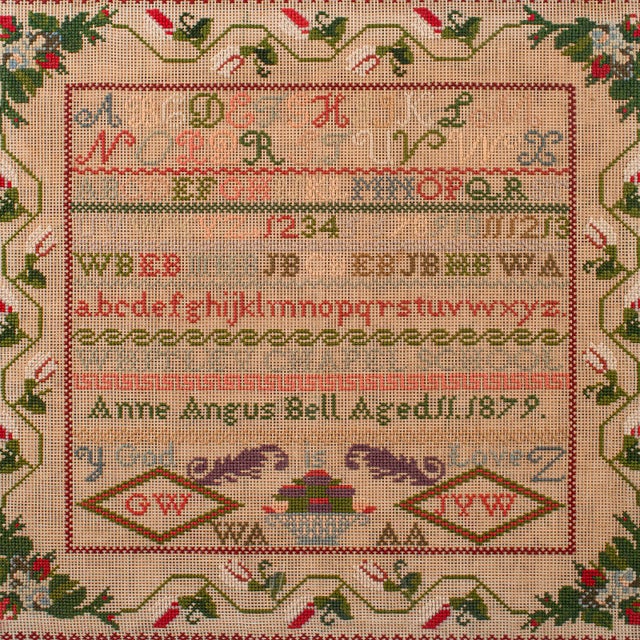 A B C D E F G H I J K L M
N O P Q R S T U V W X
A B C D E F G H I J K L M N O P Q R S
1 2 3 4 11 12 13
WB EB JB EB JB HB WA
abcdefghijklmnopqrstuvwxyz.
WHITLEY CHAPEL SCHOOL
Anne Angus Bell Aged 11. 1879.
Y God is Love Z
GW JYW
WA AA